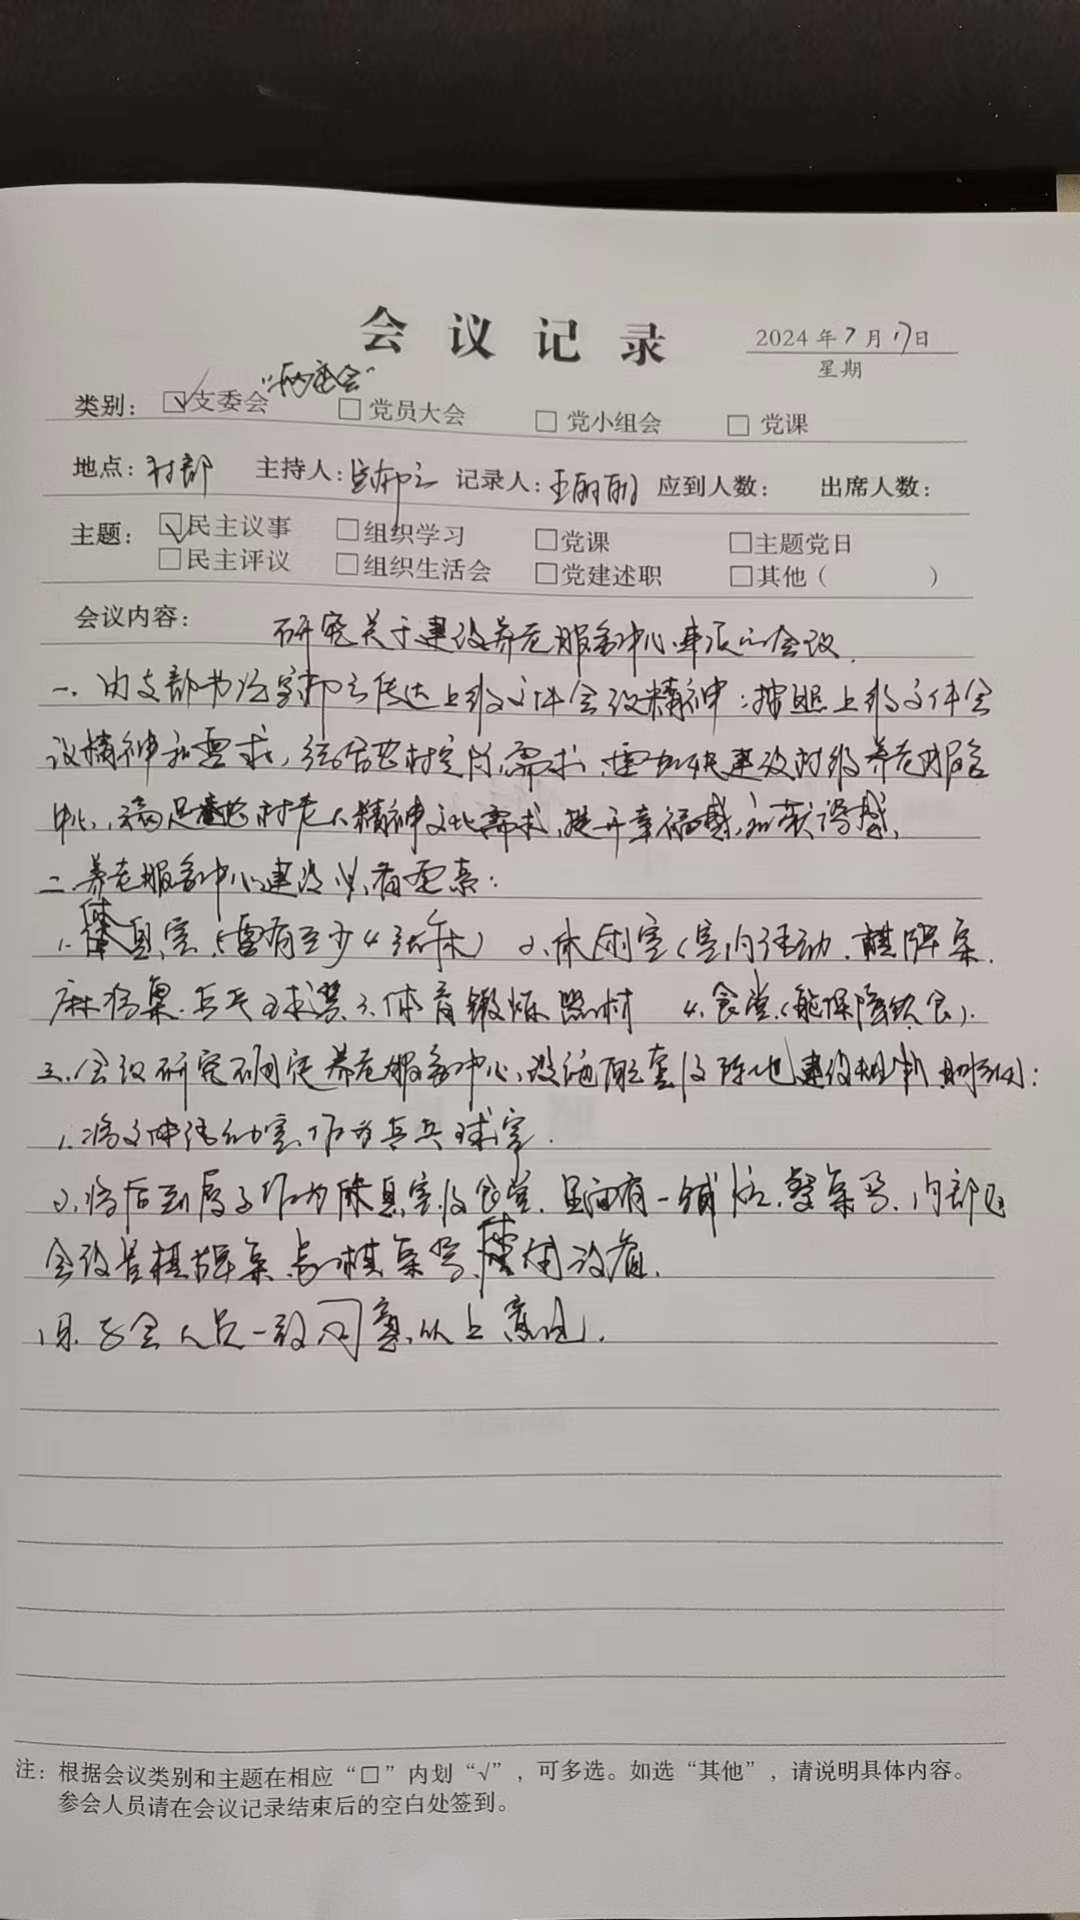 会议记录
2024年7月17日
星期
类别：☑支委会“两委会” □党员大会 □党小组会 □党课
地点：村部 主持人： 记录人：王丽丽 应到人数： 出席人数：
主题：☑民主议事 □组织学习 □党课 □主题党日
□民主评议 □组织生活会 □党建述职 □其他（ ）
会议内容： 研究关于建设养老服务中心事项的会议
一、由支部书记传达上级文件会议精神：按照上级文件会
议精神和要求，结合村实际需求，要加快建设村级养老服务
中心，满足村老人精神文化需求，提升幸福感，和获得感，
二、养老服务中心建设必有要素：
1.休息室（需有至少4张床） 2.休闲室（室内活动、棋牌桌、
麻将桌、乒乓球桌 3.体育锻炼器材 4.食堂（能保障饮食）.
三、会议研究确定养老服务中心设施配套及阵地建设规划
1.将文体活动室，作为乒乓球室.
2.将后到房子作为休息室及食堂，里面有一铺炕，餐桌等，内部
会设置棋牌桌，棋桌等休闲设备.
四.与会人员一致同意以上意见.
注：根据会议类别和主题在相应“□”内划“√”，可多选。如选“其他”，请说明具体内容。
参会人员请在会议记录结束后的空白处签到。